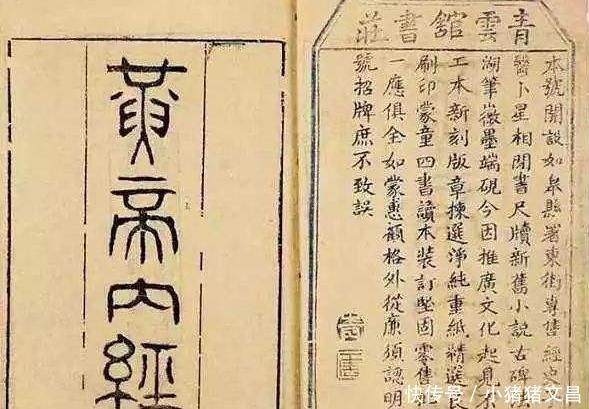 青雲舘書莊
本號開設如皋縣署東街專售經史
醫卜星相閒書尺牘新舊小說古碑
湖筆徽墨端硯今因推廣文化起見
工本新刻版章揀選淨純重紙精選
刷印蒙童四書讀本裝訂堅固零售
一應俱全如蒙惠顧格外從廉須認明
號招牌庶不致誤
黃帝內經
快传号 / 小猪猪文昌